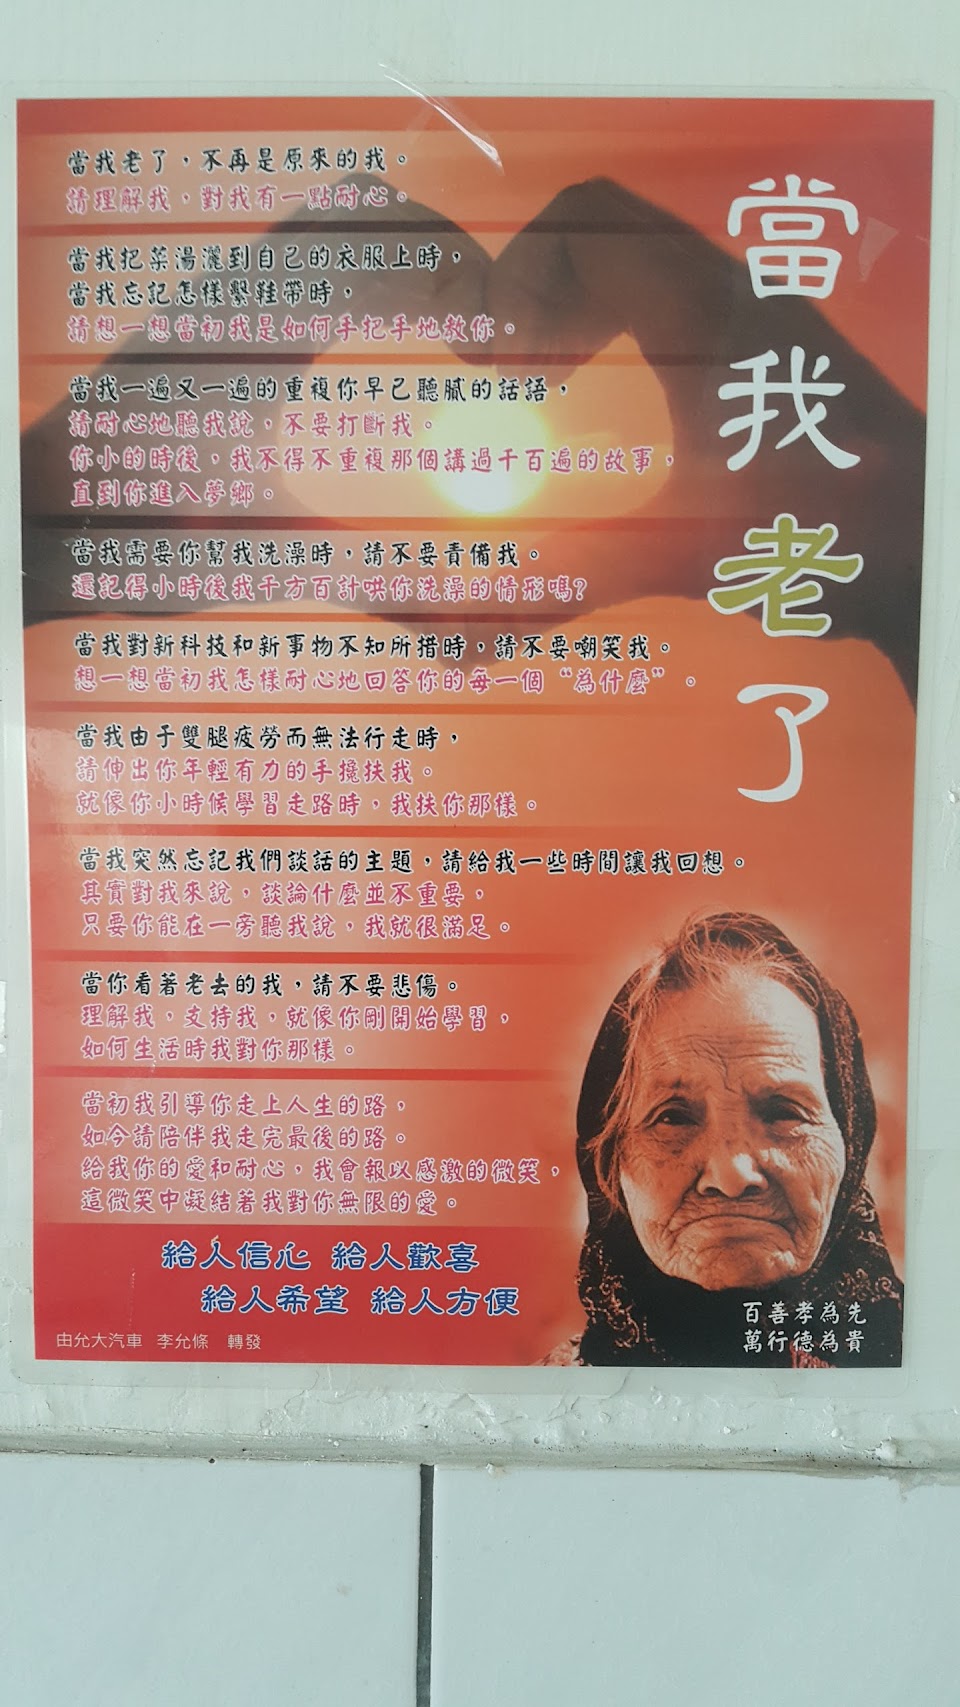 當我老了
當我老了，不再是原來的我。
請理解我，對我有一點耐心。
當我把菜湯灑到自己的衣服上時，
當我忘記怎樣繫鞋帶時，
請想一想當初我是如何手把手地教你。
當我一遍又一遍的重複你早已聽膩的話語，
請耐心地聽我說，不要打斷我。
你小的時後，我不得不重複那個講過千百遍的故事，
直到你進入夢鄉。
當我需要你幫我洗澡時，請不要責備我。
還記得小時後我千方百計哄你洗澡的情形嗎?
當我對新科技和新事物不知所措時，請不要嘲笑我。
想一想當初我怎樣耐心地回答你的每一個“為什麼”。
當我由于雙腿疲勞而無法行走時，
請伸出你年輕有力的手攙扶我。
就像你小時候學習走路時，我扶你那樣。
當我突然忘記我們談話的主題，請給我一些時間讓我回想。
其實對我來說，談論什麼並不重要，
只要你能在一旁聽我說，我就很滿足。
當你看著老去的我，請不要悲傷。
理解我，支持我，就像你剛開始學習，
如何生活時我對你那樣。
當初我引導你走上人生的路，
如今請陪伴我走完最後的路。
給我你的愛和耐心，我會報以感激的微笑，
這微笑中凝結著我對你無限的愛。
給人信心 給人歡喜
給人希望 給人方便
由允大汽車 李允條 轉發
百善孝為先
萬行德為貴